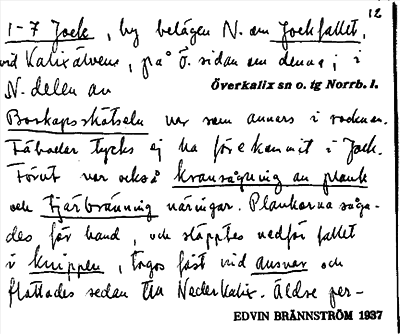 12
1-7 Jock, by belägen N. om Jockfallet,
vid Kalixälven, på ö. sidan om denna; i
N. delen av Överkalix sn o. tg Norrb. l.
Boskapsskötseln var som annars i socknen.
Fäbodar tycks ej ha förekommit i Jock.
Förut var också kransågning av plank
och tjärbränning näringar. Plankorna såga-
des för hand, och släpptes nedför fallet
i knippen, togos fast vid ansvar och
flottades sedan till Nederkalix. Äldre per-
EDVIN BRÄNNSTRÖM 1937